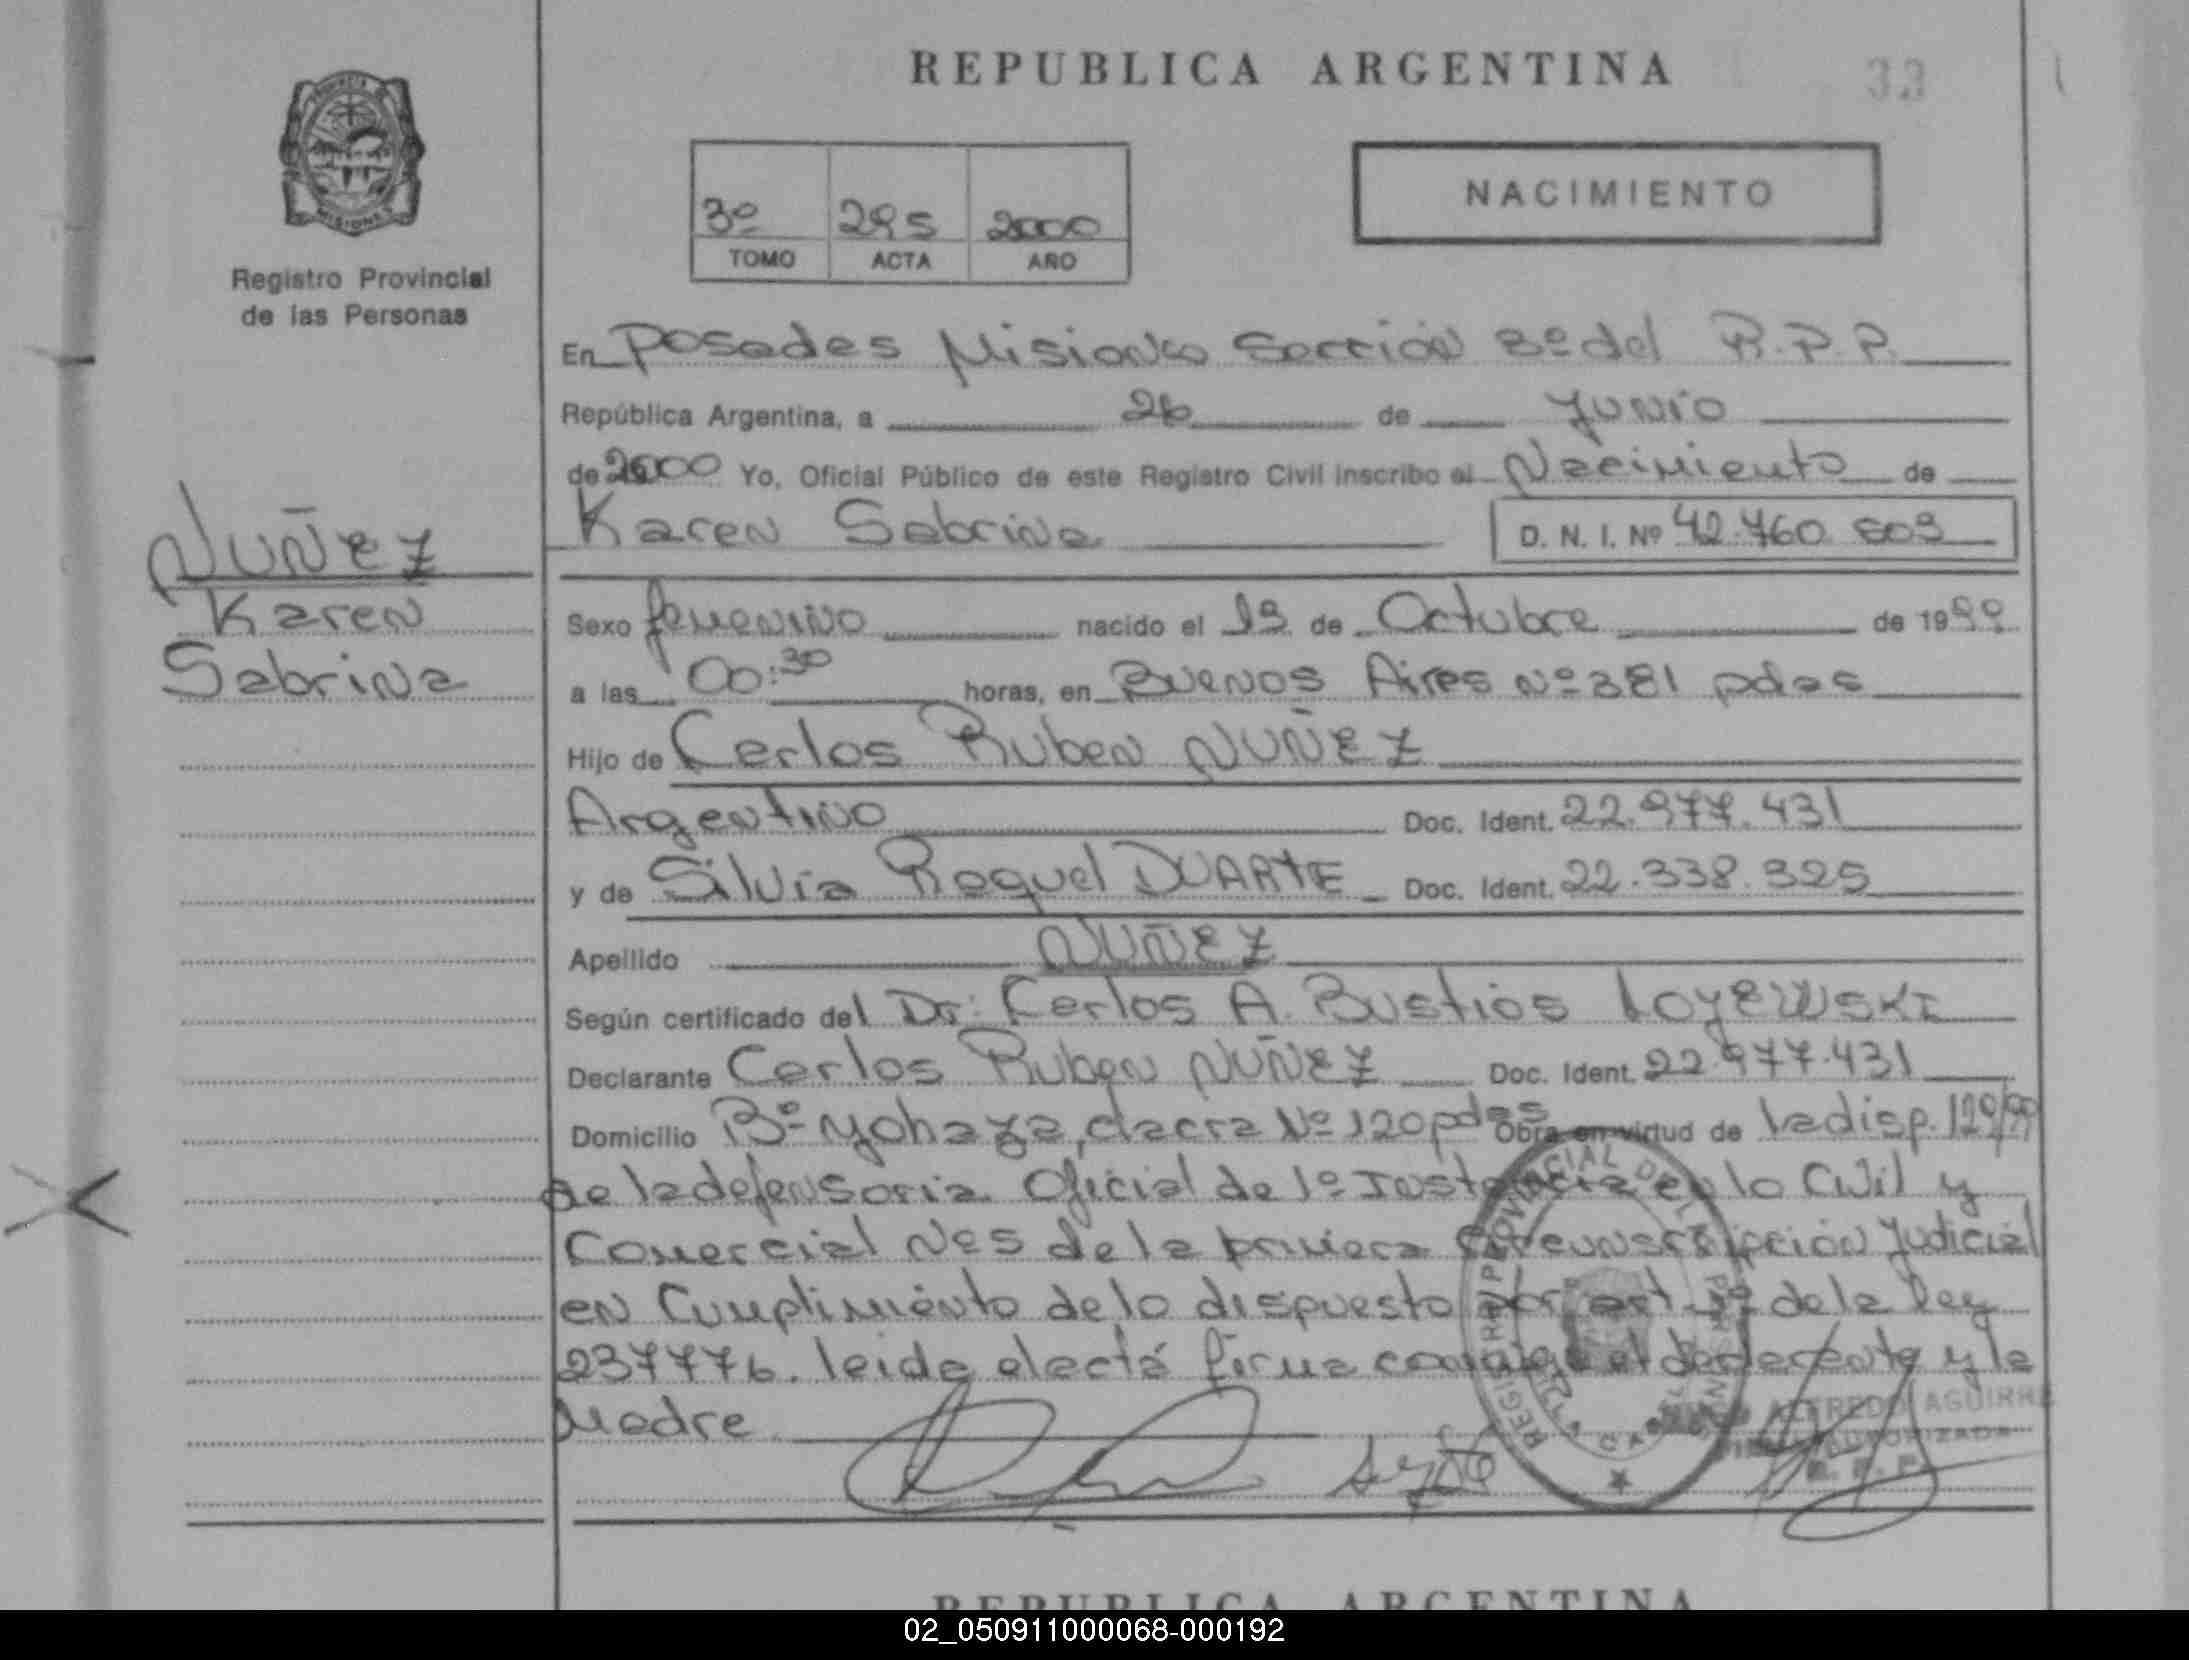 REPUBLICA ARGENTINA
33
MISIONES
Registro Provincial
de las Personas
3º 295 2000
TOMO ACTA AÑO
NACIMIENTO
En Posadas Misiones Sección 3º del R.P.P.
República Argentina, a 26 de Junio
de 2000 Yo, Oficial Público de este Registro Civil inscribo el Nacimiento de
Karen Sabrina D. N. I. Nº 42.760.
NUÑEZ
Karen
Sabrina
Sexo femenino nacido el 19 de Octubre de 1999
a las 00:30 horas, en Buenos Aires Nº 381 pdas
Hijo de Carlos Ruben NUÑEZ
Argentino Doc. Ident. 22.977.431
y de Silvia Raquel DUARTE Doc. Ident. 22.338.325
Apellido NUÑEZ
Según certificado del Dr: Carlos A. Bustios LOYEWSKI
Declarante Carlos Ruben NUÑEZ Doc. Ident. 22.977.431
Domicilio Bº Yohaza, chacra Nº 120 pdas Obra en virtud de la disp. 129/99
de la defensoria Oficial de 1º Instancia en lo Civil y
Comercial Nº 5 de la primera Circunscripción Judicial
en Cumplimiento de lo dispuesto por art. de la ley
237776. leida el acta firma conmigo el declarante y la
Madre
REGISTRO PROVINCIAL DE LAS PERSONAS
ALFREDO AGUIRRE
AUTORIZADA
R. P. P.
REPUBLICA ARGENTINA
02_050911000068-000192